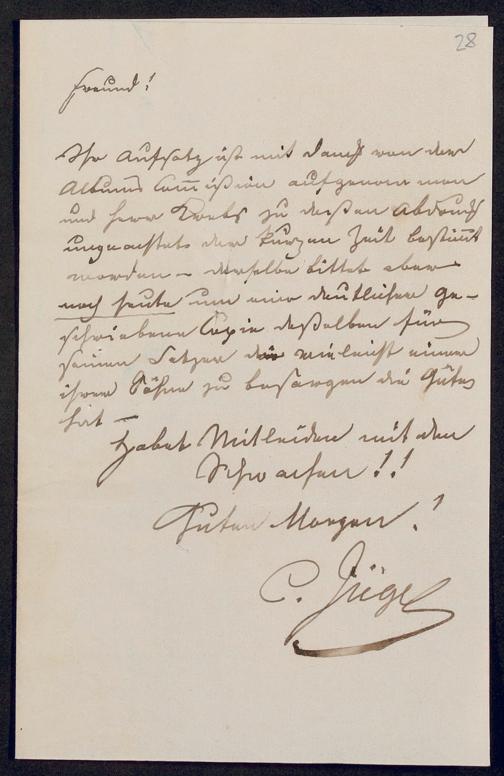 28
Freund!
Ihr Aufsatz ist mit Dank von der
Albums Com̅ißion aufgenom̅men
und Herr Krebs zu deßen Abdruck
ungeachtet der kurzen Zeit bestim̅t
worden – derselbe bittet aber
noch heute um eine deutlicher ge-
schriebene Copie deßelben für
seinen Setzer die vieleicht einer
ihrer Söhne zu besorgen die Güte
hat –
Habet Mitleiden mit den
Schwachen!!
Guten Morgen!
C. Jügel